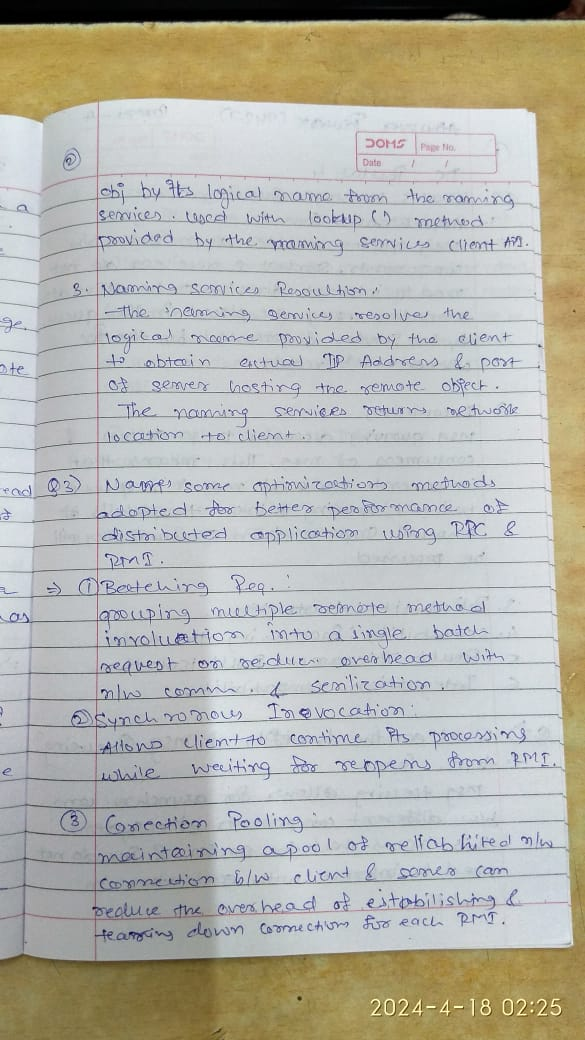 DOMS
Page No.
Date / /
②
obj by its logical name from the naming
services. used with lookup () method
provided by the naming services client API.
3. Naming services Resoultion:
- The naming services resolves the
logical name provided by the client
to obtain actual IP Address & port
of server hosting the remote object.
The naming services returns network
location to client.
Q3) Names some optimization methods
adopted for better performance of
distributed application using RPC &
RMI.
⇒ ① Beatching Req. :
grouping multiple remote method
involuation into a single batch
request on reduce overhead with
n/w comm. & serilization.
② Synchronous Inovocation:
Allows client to contime its processing
while waiting for reppens from RMI.
③ Conection Pooling:
maintaining a pool of n/w
connection b/w client & server can
reduce the overhead of estabilishing &
tearing down connection for each RMI.
a
ge.
ote
ead
as
e
2024-4-18 02:25